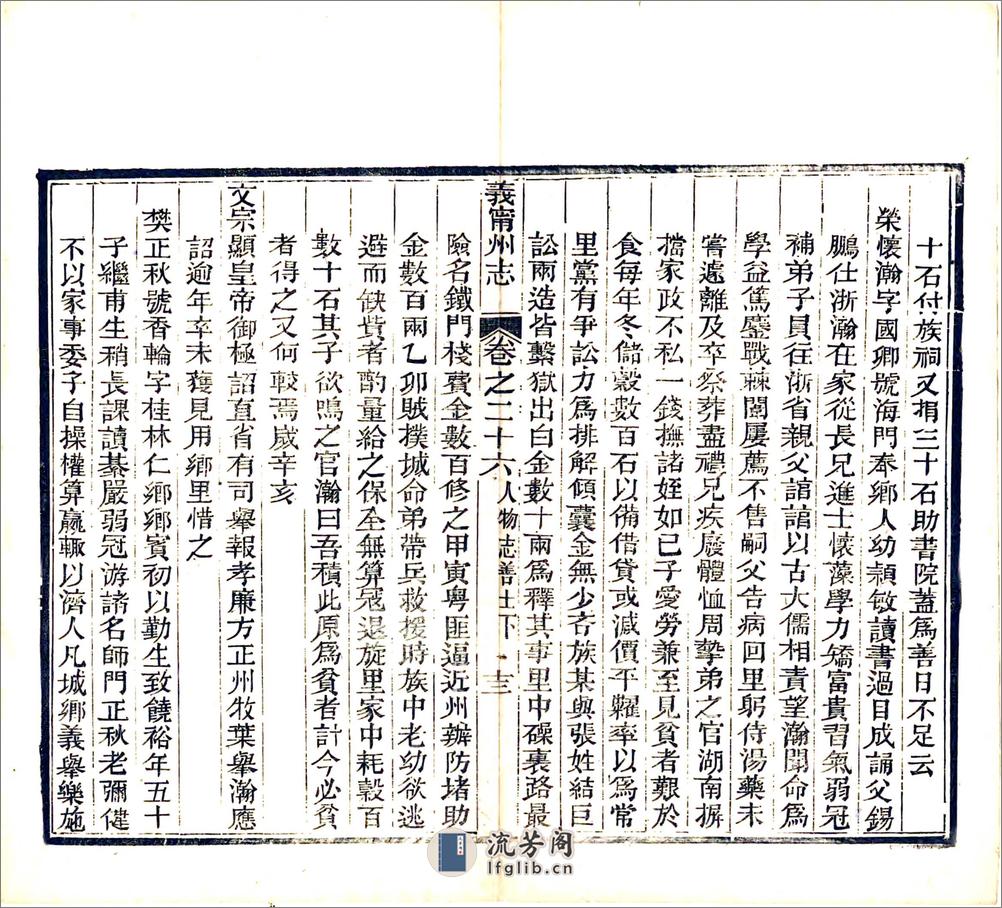 十石付族祠又捐三十石助書院蓋爲善日不足云
榮懷瀚字國卿號海門奉鄉人幼穎敏讀書過目成誦父錫
鵬仕浙瀚在家從長兄進士懷藻學力矯富貴習氣弱冠
補弟子員往浙省親父誼誼以古大儒相責望瀚聞命爲
學益篤鏖戰棘闈屢薦不售嗣父告病回里躬侍湯藥未
嘗遠離及卒祭葬盡禮兄疾廢體恤周摯弟之官湖南摒
擋家政不私一錢撫諸姪如已子愛勞兼至見貧者艱於
食每年冬儲穀數百石以備借貸或減價平糶率以爲常
里黨有爭訟力爲排解傾囊金無少吝族某與張姓結巨
訟兩造皆繫獄出白金數十兩爲釋其事里中磲裏路最
義甯州志 卷之二十六 人物志善士下 十三
險名鐵門棧費金數百修之甲寅粵匪逼近州辦防堵助
金數百兩乙卯賊撲城命弟帶兵救援時族中老幼欲逃
避而缺費者酌量給之保全無算冦退旋里家中耗穀百
數十石其子欲鳴之官瀚曰吾積此原爲貧者計今必貧
者得之又何較焉歲辛亥
文宗顯皇帝御極詔直省有司舉報孝廉方正州牧葉舉瀚應
詔逾年卒未獲見用鄉里惜之
樊正秋號香輪字桂林仁鄉鄉賓初以勤生致饒裕年五十
子繼甫生稍長課讀綦嚴弱冠游諸名師門正秋老彌健
不以家事委子自操權算贏輒以濟人凡城鄉義舉樂施
流芳阁
lfglib.cn